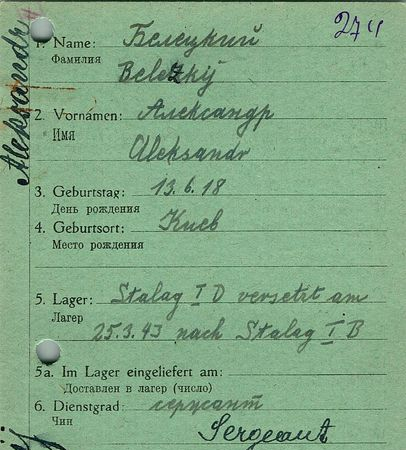 274
1. Name: Белецкий
Фамилия
Beletzkij
2. Vornamen: Александр
Имя
Aleksandr
3. Geburtstag: 13.6.18
День рождения
4. Geburtsort: Киев
Место рождения
5. Lager: Stalag I D versetzt am
Лагер
25.3.43 nach Stalag I B
5a. Im Lager eingeliefert am:
Доставлен в лагер (число)
6. Dienstgrad: сержант
Чин
Sergeant
Aleksandr